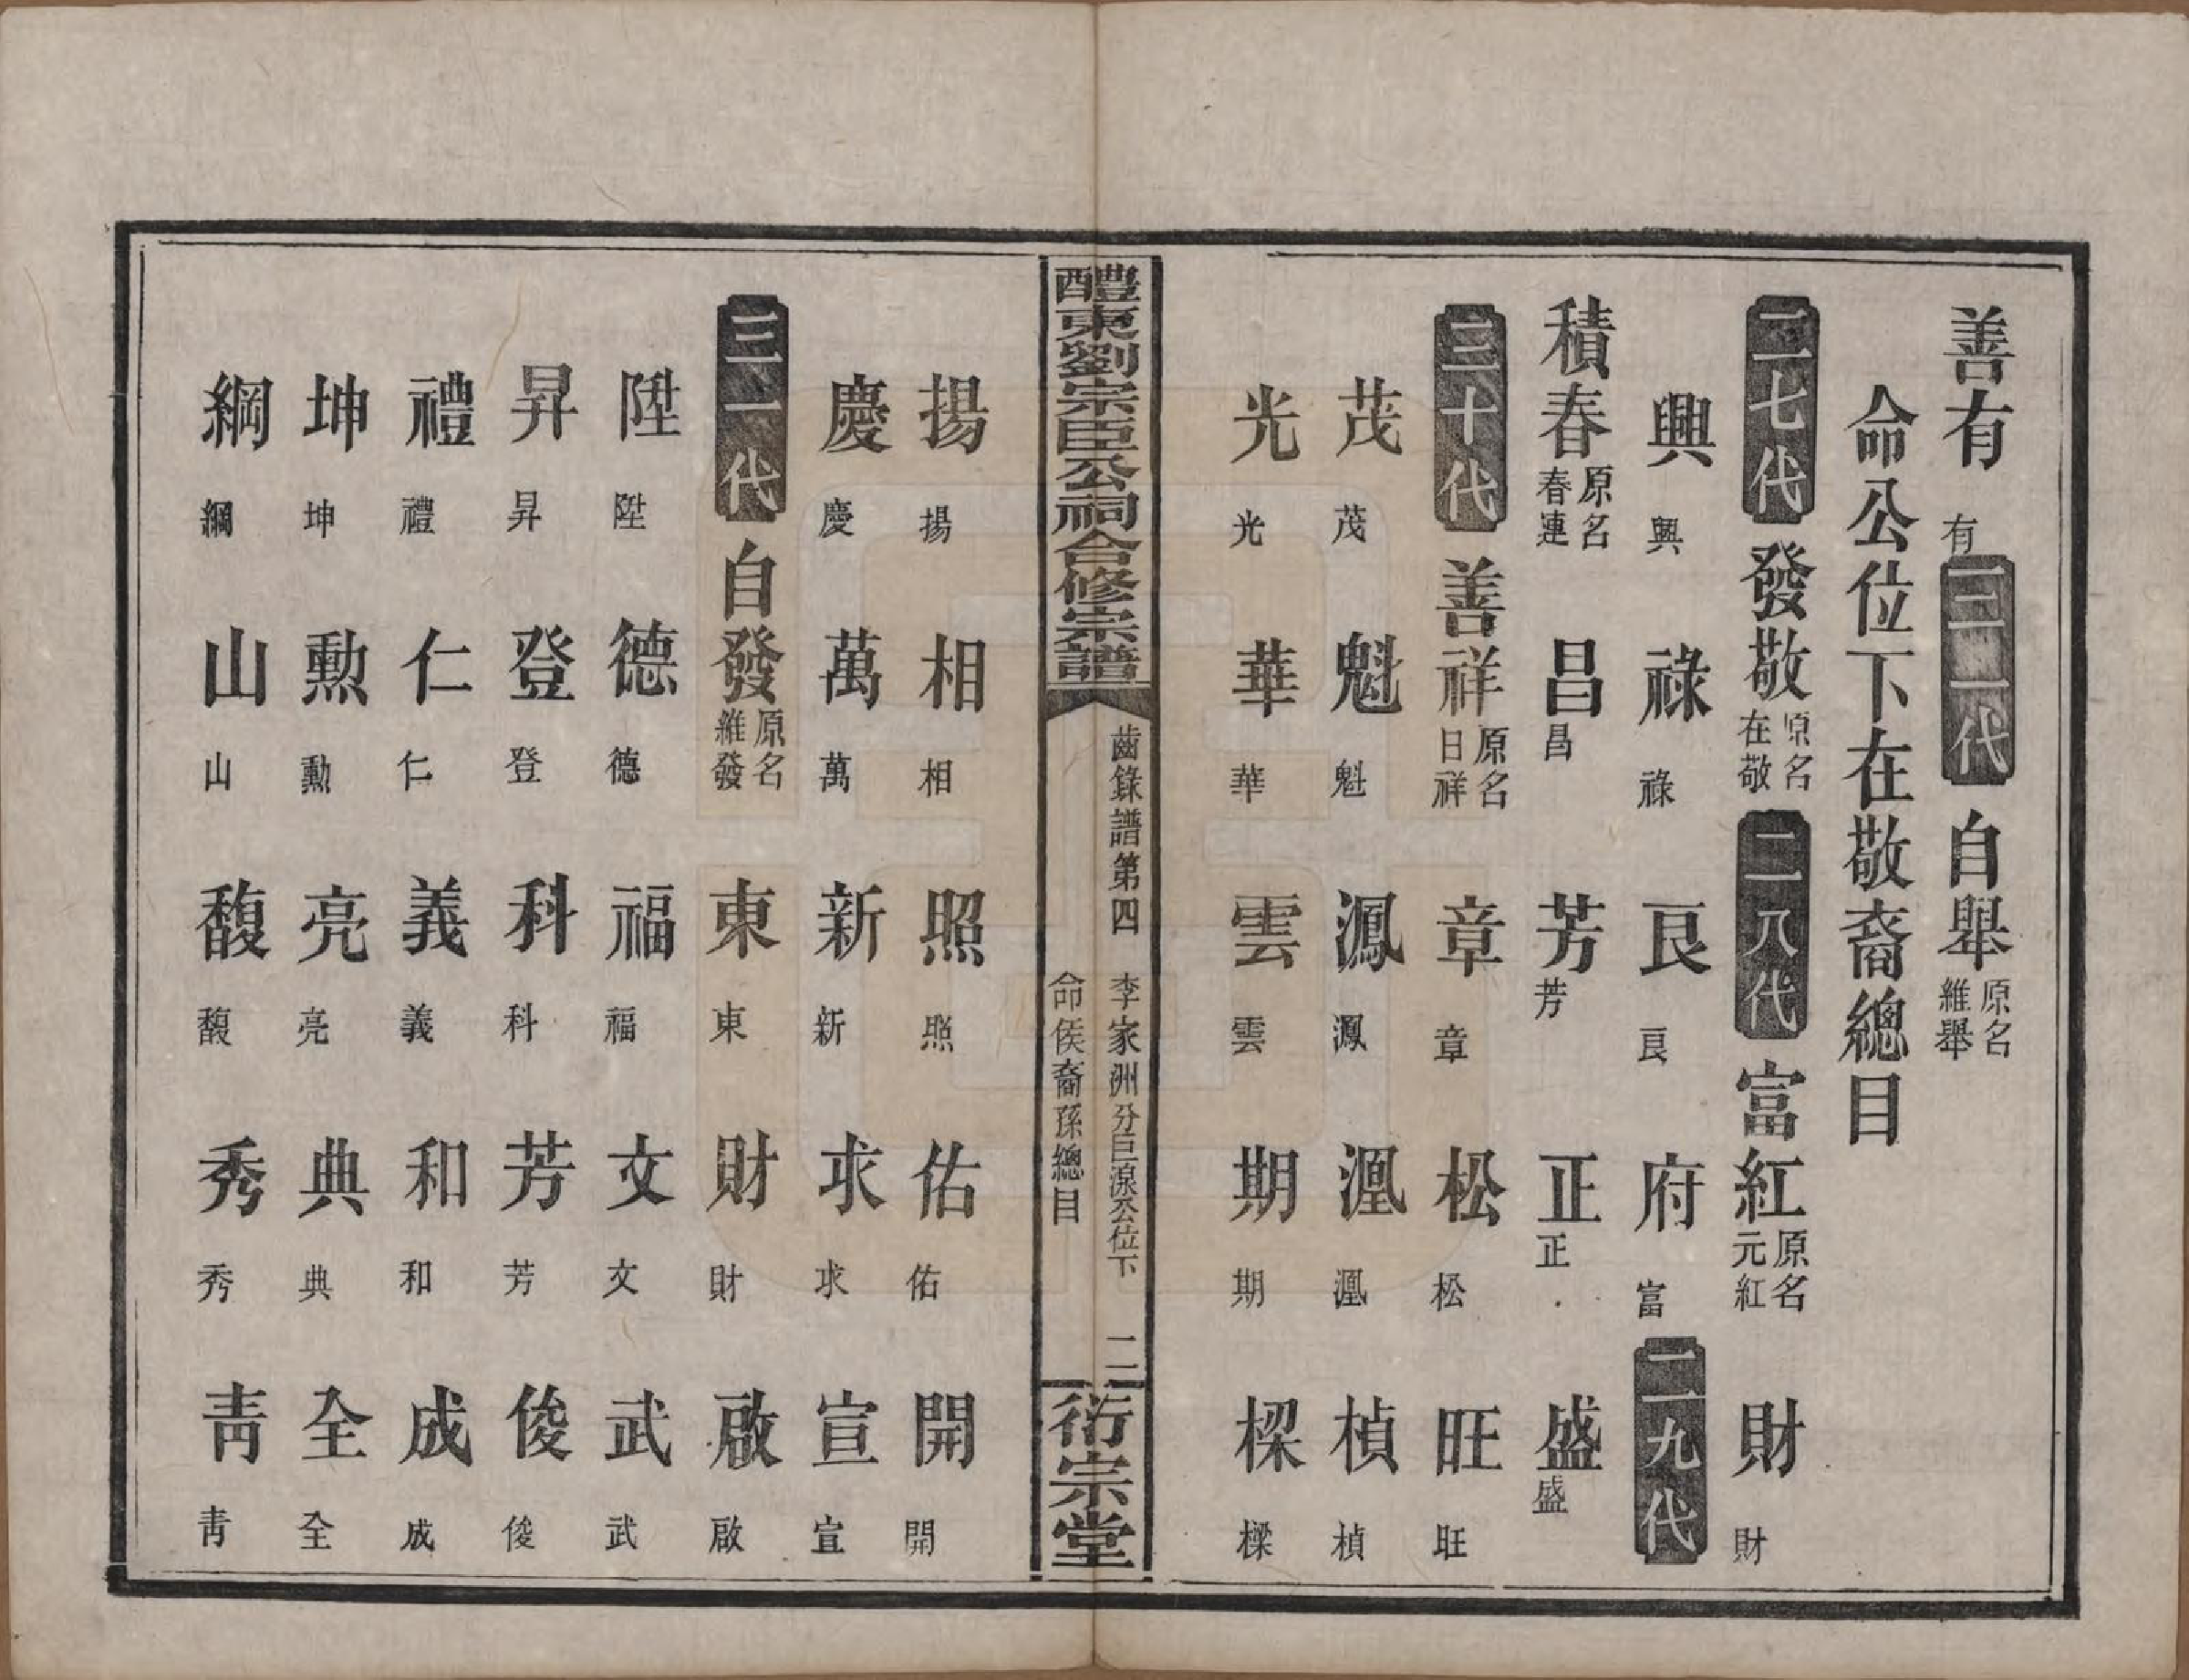 善有有 三一代 自舉原名維舉
命公位下在敬裔總目
二七代 發敬原名在敬 二八代 富紅原名元紅 財財
興興 祿祿 良良 府富 二九代
積春原名春連 昌昌 芳芳 正正 盛盛
三十代 善祥原名日祥 章章 松松 旺旺
茂茂 魁魁 鳳鳳 凰凰 楨楨
光光 華華 雲雲 期期 樑樑
醴東劉宗臣公祠合修宗譜 齒錄譜第四 李家洲分巨源公位下 命侯裔孫總目 二二 衍宗堂
揚揚 相相 照照 佑佑 開開
慶慶 萬萬 新新 求求 宣宣
三一代 自發原名維發 東東 財財 啟啟
陞陞 德德 福福 文文 武武
昇昇 登登 科科 芳芳 俊俊
禮禮 仁仁 義義 和和 成成
坤坤 勳勳 亮亮 典典 全全
綱綱 山山 馥馥 秀秀 靑靑